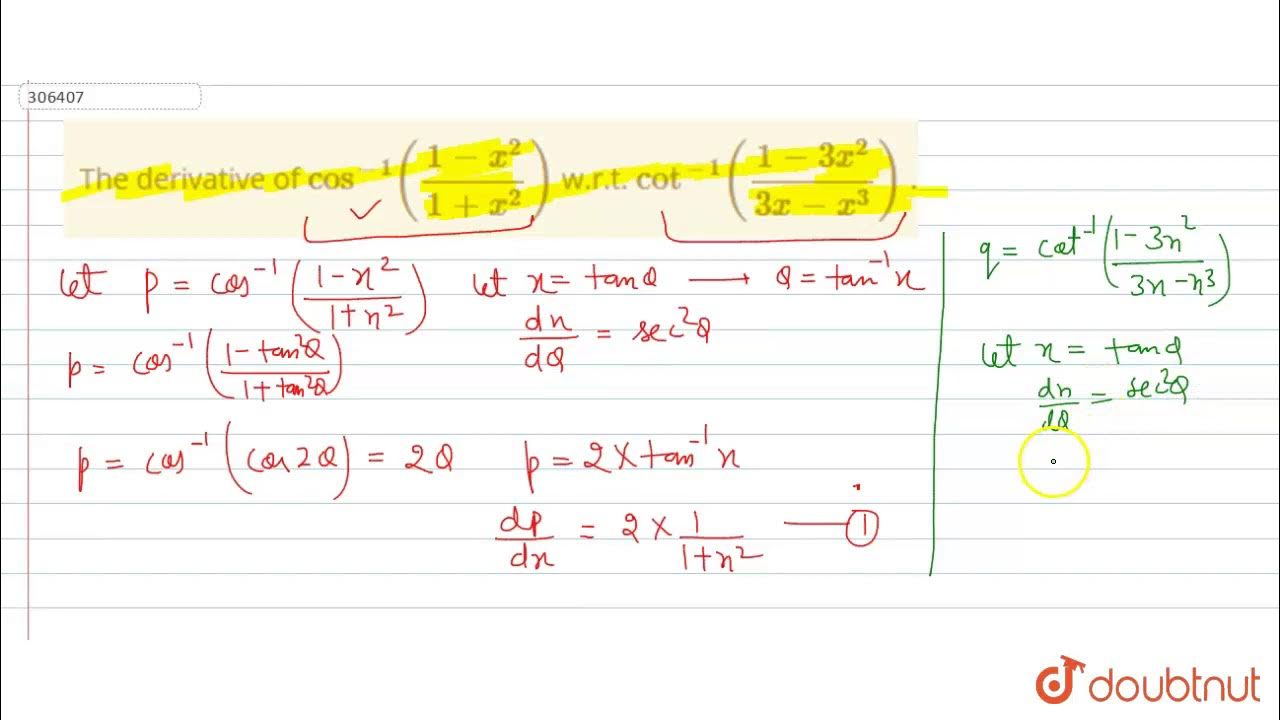 306407
The derivative of cos⁻¹((1 − x²)/(1 + x²)) w.r.t. cot⁻¹((1 − 3x²)/(3x − x³)) .
let p = cos⁻¹((1 - x²)/(1 + x²)) let x = tanθ → θ = tan⁻¹x
dx/dθ = sec²θ
p = cos⁻¹((1 - tan²θ)/(1 + tan²θ))
p = cos⁻¹(cos2θ) = 2θ p = 2 × tan⁻¹x
dp/dx = 2 × 1/(1 + x²) — ①
q = cot⁻¹((1 - 3x²)/(3x - x³))
let x = tanθ
dx/dθ = sec²θ
doubtnut